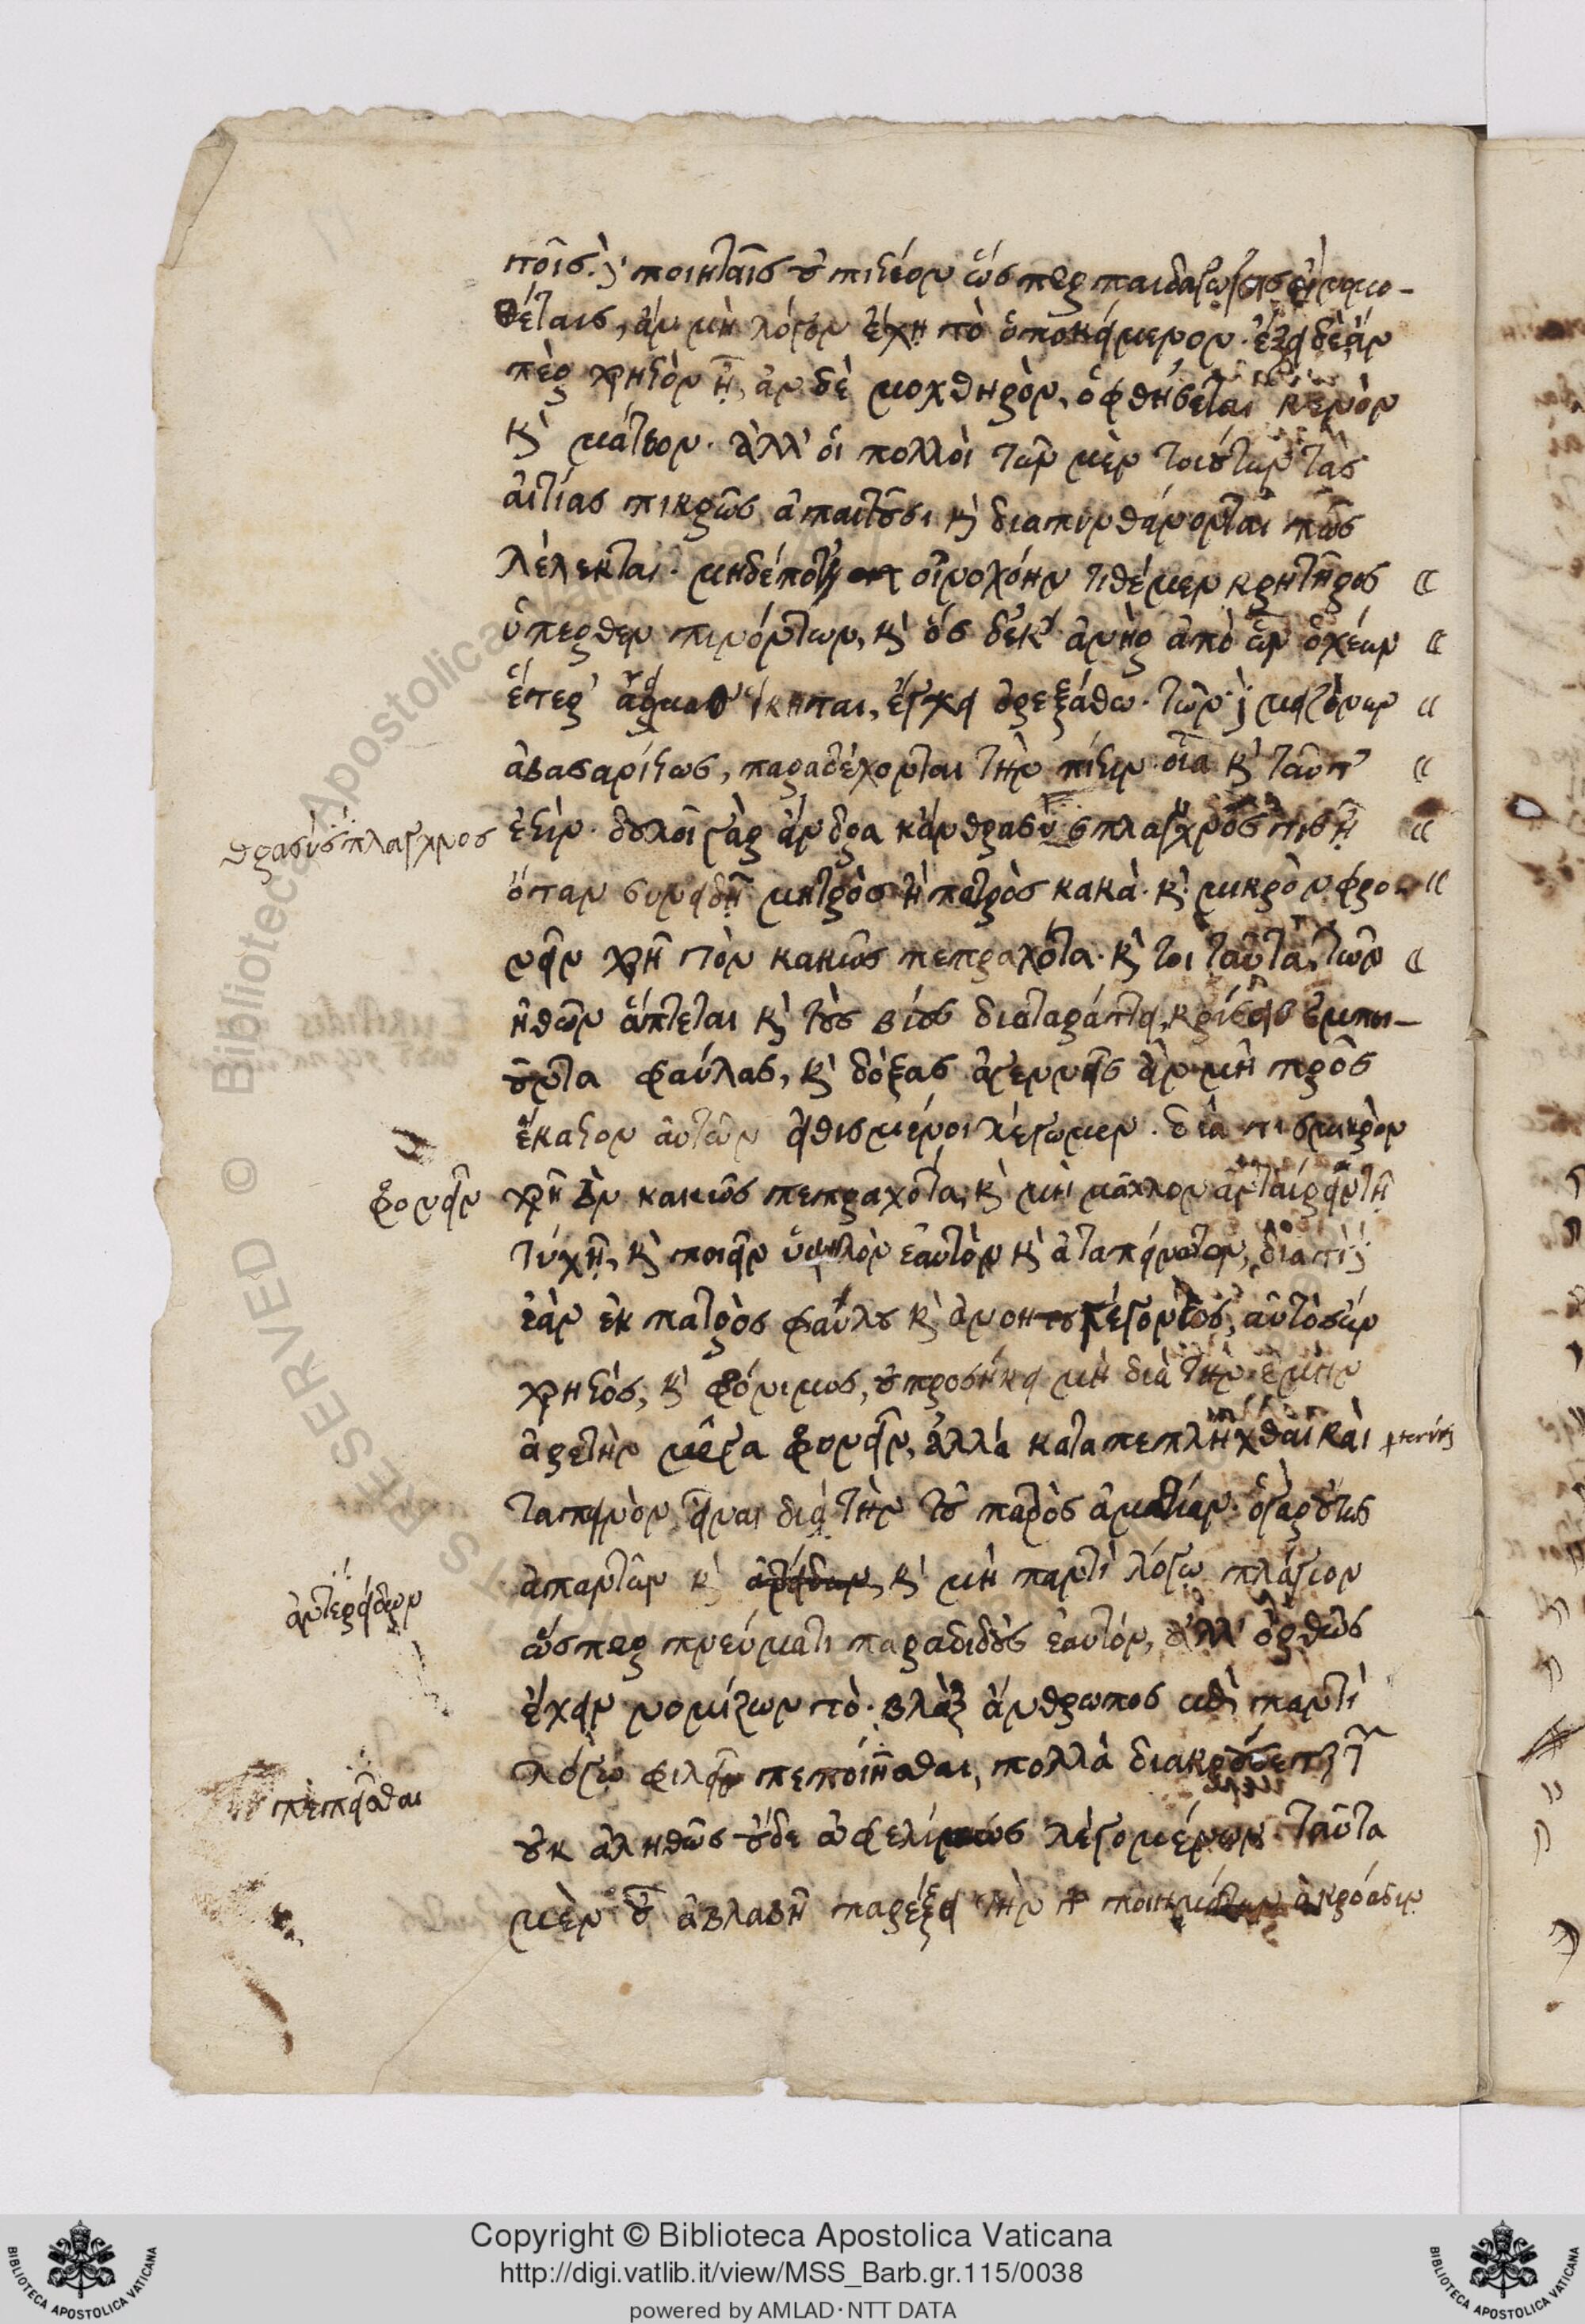 τοῖς. δὲ ποιηταῖς οὐ πιστέον ὥσπερ παιδαγωγοῖς ἢ νομο-
θέταις, ἂν μὴ λόγον ἔχῃ τὸ ὑποκείμενον. ἕξει δὲ ἄν
περ χρηστὸν ᾖ, ἂν δὲ μοχθηρὸν, ὀφθήσεται κενὸν
καὶ μάταιον. ἀλλ' οἱ πολλοὶ τῶν μὲν τοιούτων τὰς
αἰτίας πικρῶς ἀπαιτοῦσι καὶ διαπυνθάνονται πῶς
λέλεκται. μηδέποτ' οἰνοχόην τιθέμεν κρητῆρος
ὕπερθεν πινόντων, καὶ ὃς δέ κ' ἀνὴρ ἀπὸ ὧν ὀχέων
ἕτερ' ἅρμαθ' ἵκηται, ἔγχει ὀρεξάσθω. τῶν δὲ μειζόνων
ἀβασανίστως, παραδέχονται τὴν πίστιν. οἷα καὶ ταῦτ'
θρασύσπλαγχνος
ἐστίν. δουλοῖ γὰρ ἄνδρα κἂν θρασύσπλαγχνός τις ᾖ
ὅταν συνειδῇ μητρὸς ἢ πατρὸς κακά. καὶ μικρὸν φρο-
νεῖν χρὴ τὸν κακῶς πεπραχότα. καί τοι ταῦτα τῶν
ἠθῶν ἅπτεται καὶ τοὺς βίους διαταράττει, κρίσεις ἐμποι-
οῦντα φαύλας, καὶ δόξας ἀγεννεῖς ἂν μὴ πρὸς
ἕκαστον αὐτῶν εἰθισμένοι λέγωμεν. διὰ τί σμικρὸν
φρονεῖν
χρὴ τὸν κακῶς πεπραχότα, καὶ μὴ μᾶλλον ἀνταίρειν τῇ
τύχῃ, καὶ ποιεῖν ὑψηλὸν ἑαυτὸν καὶ ἀταπείνωτον, διὰ τί δὲ
ἐὰν ἐκ πατρὸς φαύλου καὶ ἀνοήτου γεγονὼς, αὐτὸς ὢν
χρηστός, καὶ φρόνιμος, οὐ προσήκει μὴ διὰ τὴν ἐμὴν
ἀρετὴν μέγα φρονεῖν, ἀλλὰ καταπεπλῆχθαι καὶ
ταπεινὸν εἶναι διὰ τὴν τοῦ πατρὸς ἀμαθίαν. ὁ γὰρ οὕτως
ἀπαντῶν καὶ ἀντείδων, καὶ μὴ παντὶ λόγῳ πλάγιον
ἀντερείδων
ὥσπερ πνεύματι παραδιδοὺς ἑαυτόν, ἀλλ' ὀρθῶς
ἔχειν νομίζων τὸ. βλὰξ ἄνθρωπος ἐπὶ παντὶ
λόγῳ φιλεῖ πεποιῆσθαι, πολλὰ διακρούσεται τῶν
πεπεῖσθαι
οὐκ ἀληθῶς οὐδὲ ὠφελίμως λεγομένων. ταῦτα
μὲν οὖν ἀβλαβῆ παρέξει τὴν τῶν ποιημάτων ἀκρόασιν